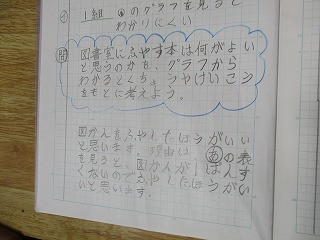 ④ 1組 あのグラフを見ると
わかりにくい
問 図書室にふやす本は何がよい
と思うのかを、グラフから
わかるとくちょうやけいこう
をもとに考えよう。
図かんをふやしたほうがいい
と思います。理由は、あの表
を見ると、図かんが1ばんす
くないのでふやしたほうがい
いと思います。